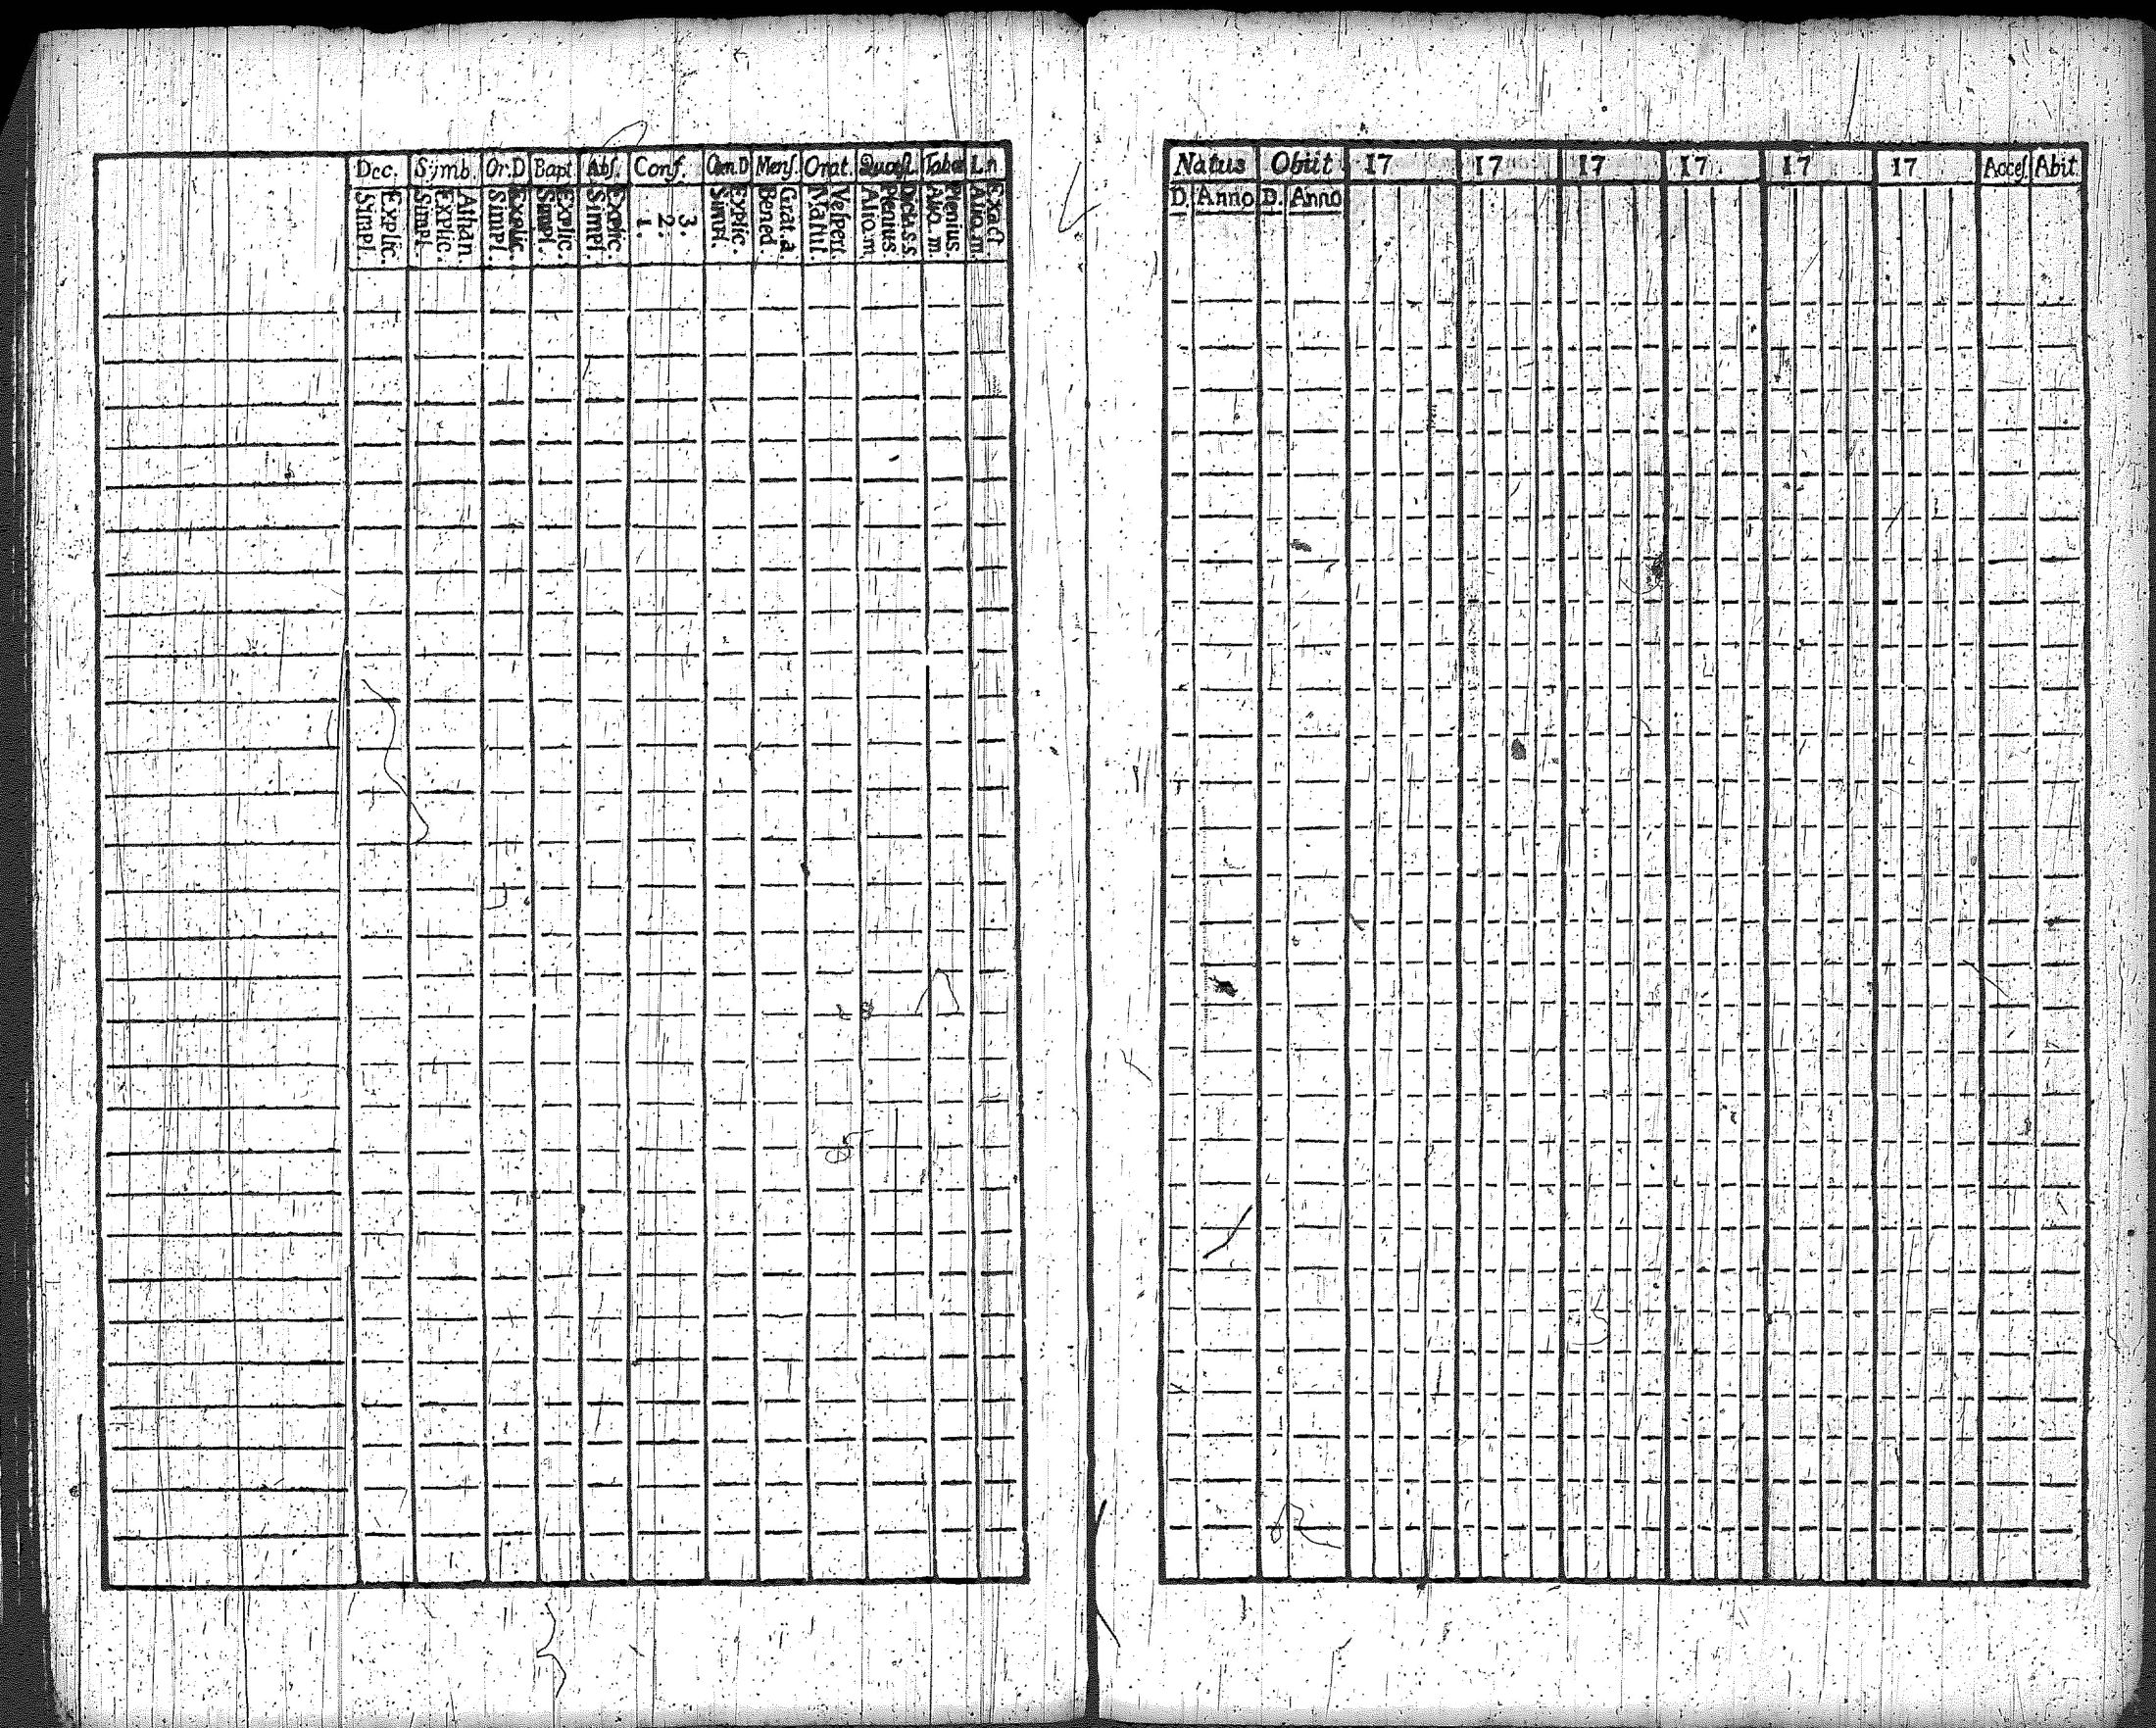 Dec. Sijmb. Or.D Bapt Abſ. Conf. Cœn.D Menſ. Orat. Quæſt. Tabœ L.n
Explic. Simpl.
Athan. Explic. Simpl.
Explic. Simpl.
Explic. Simpl.
Explic. Simpl.
3. 2. 1.
Explic. Simpl.
Grat. a. Bened.
Veſpert. Matut.
Dicta s.s. Plenius. Alio. m.
Plenius. Alio. m
Exact Alio. m.
Natus Obiit 17 17 17 17 17 17 Acceſ Abit
D. Anno D. Anno